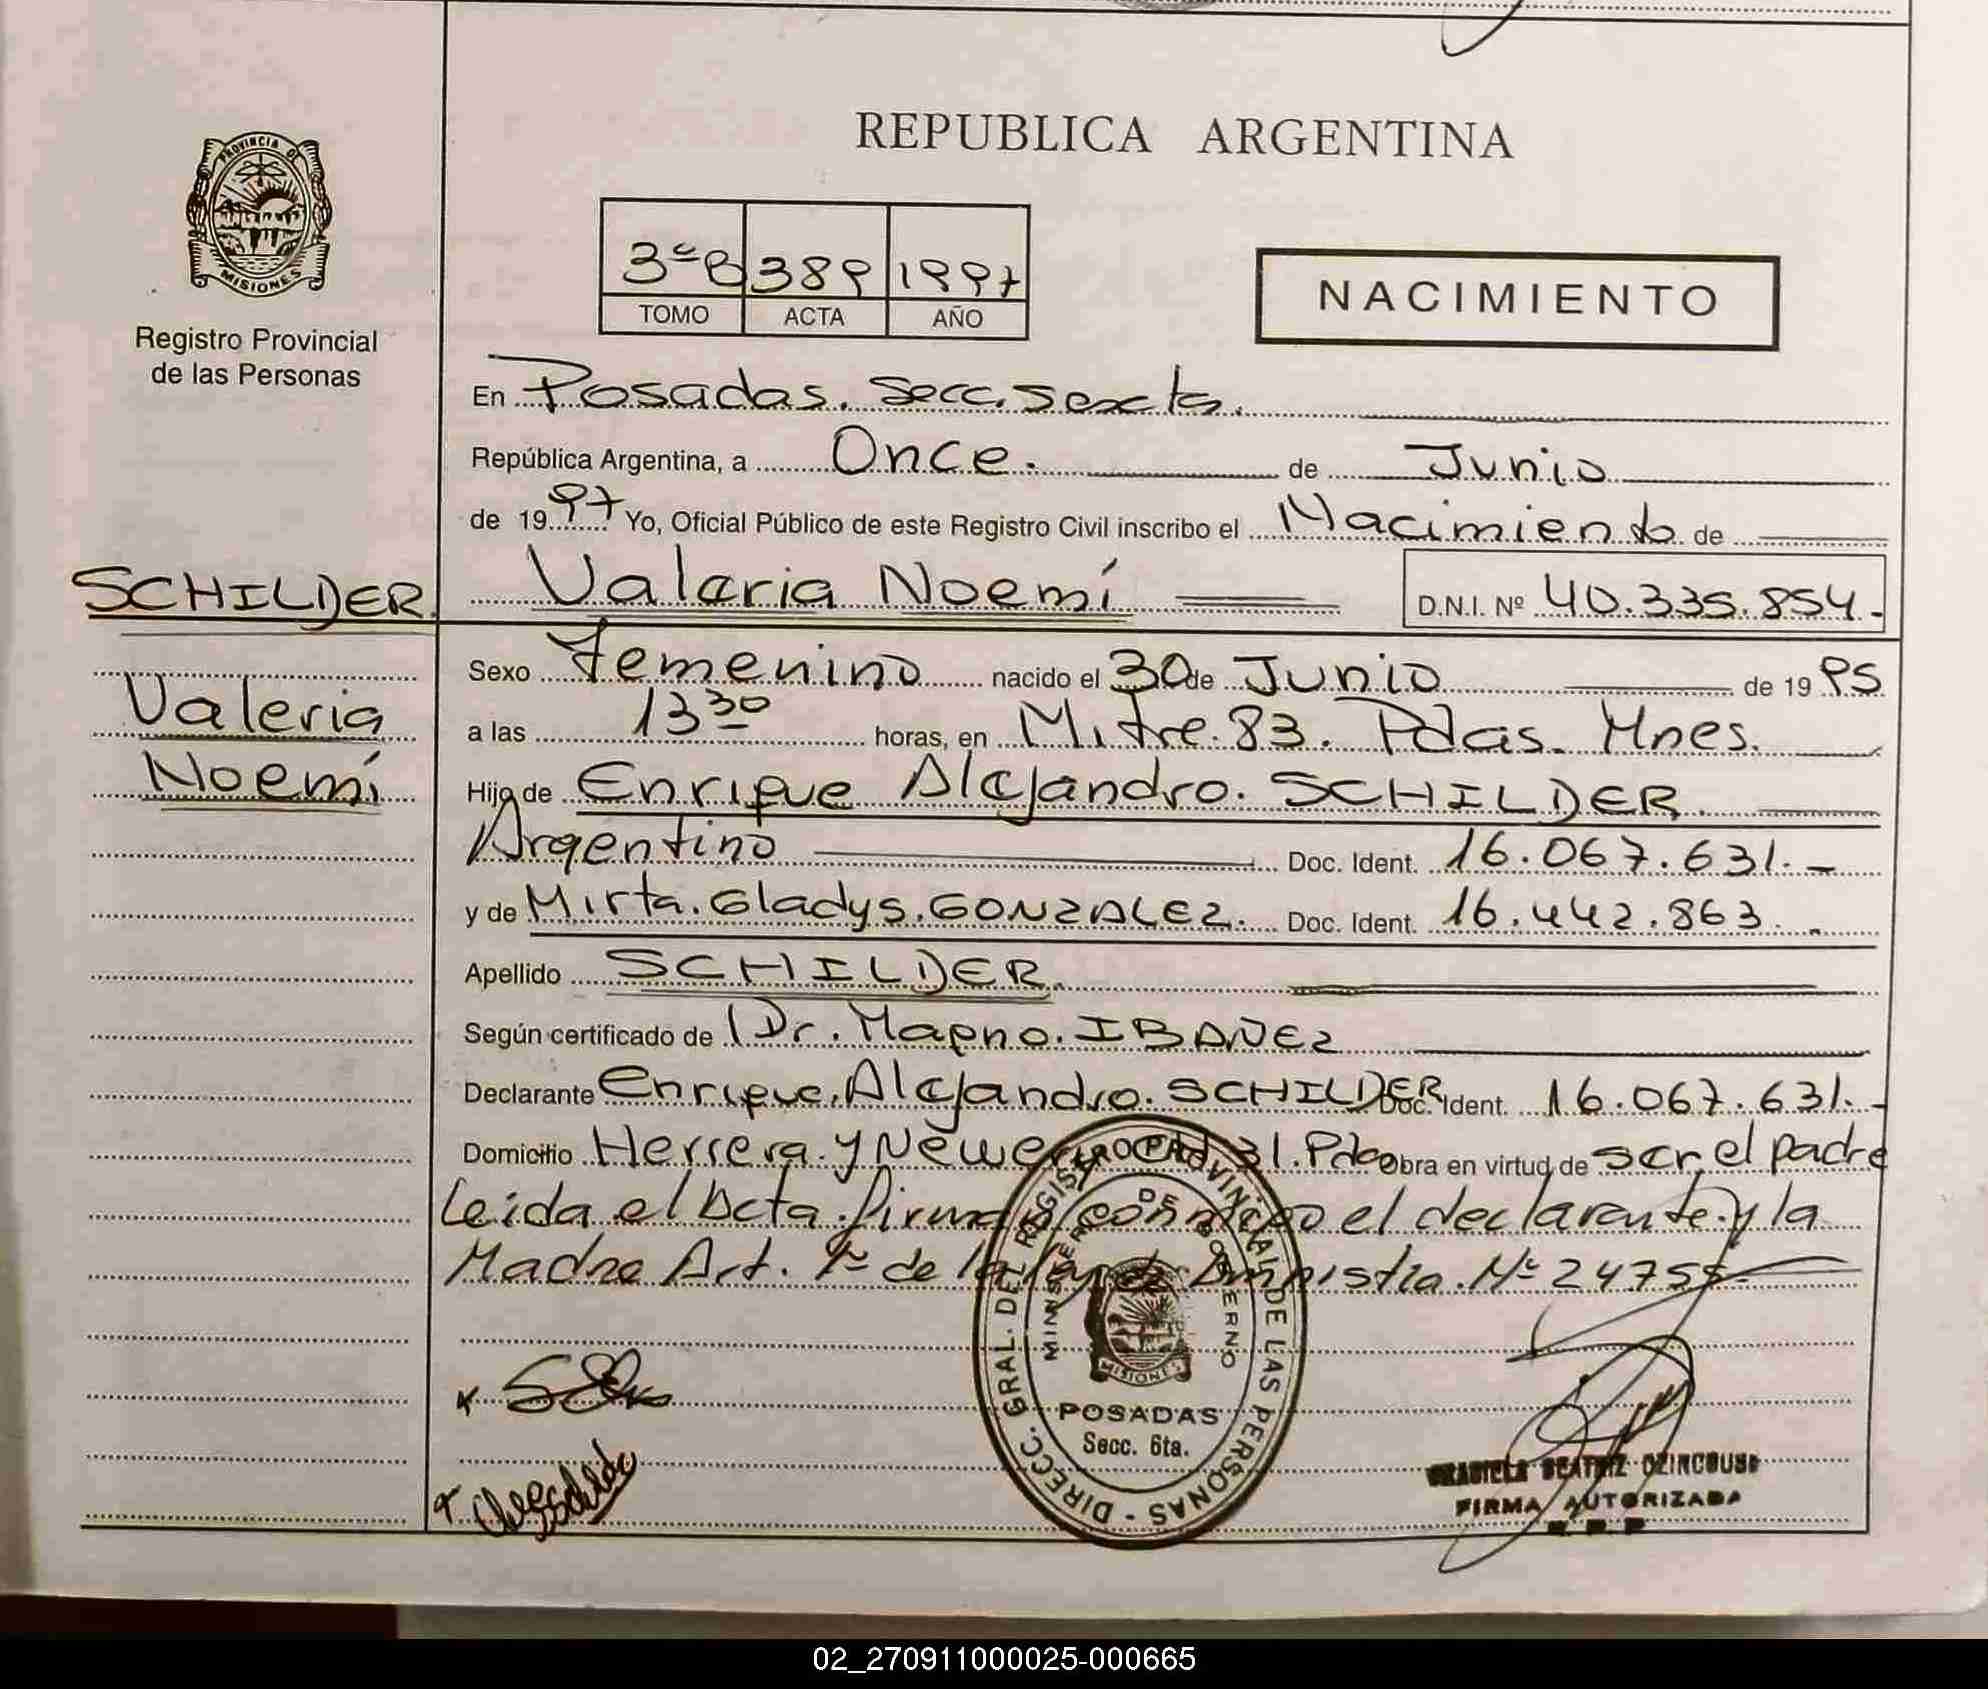 REPUBLICA ARGENTINA
PROVINCIA DE
MISIONES
Registro Provincial
de las Personas
3ºB 389 1997
TOMO ACTA AÑO
NACIMIENTO
En Posadas. Secc. Sexta.
República Argentina, a Once. de Junio
de 1997 Yo, Oficial Público de este Registro Civil inscribo el Nacimiento de
SCHILDER. Valeria Noemí D.N.I. Nº 40.335.854.-
Valeria
Noemí
Sexo Femenino nacido el 30 de Junio de 1995
a las 13 30 horas, en Mitre. 83. Pdas. Mnes.
Hija de Enrique Alejandro. SCHILDER
Argentino Doc. Ident. 16.067.631.-
y de Mirta. Gladys. GONZALEZ. Doc. Ident. 16.442.863.
Apellido SCHILDER.
Según certificado de Dr. Magno. IBAÑEZ
Declarante Enrique. Alejandro. SCHILDER Doc. Ident. 16.067.631.-
Domicilio Herrera. y 31. Obra en virtud de ser el padre
Leida el Acta. firma conmigo el declarante y la
Madre Art. 1º de la Ley de Amnistia. Nº 24755
DIRECC. GRAL. DEL REGISTRO PROVINCIAL DE LAS PERSONAS -
MINISTERIO DE GOBIERNO
MISIONES
POSADAS
Secc. 6ta.
GRACIELA BEATRIZ
FIRMA AUTORIZADA
R P P
02_270911000025-000665